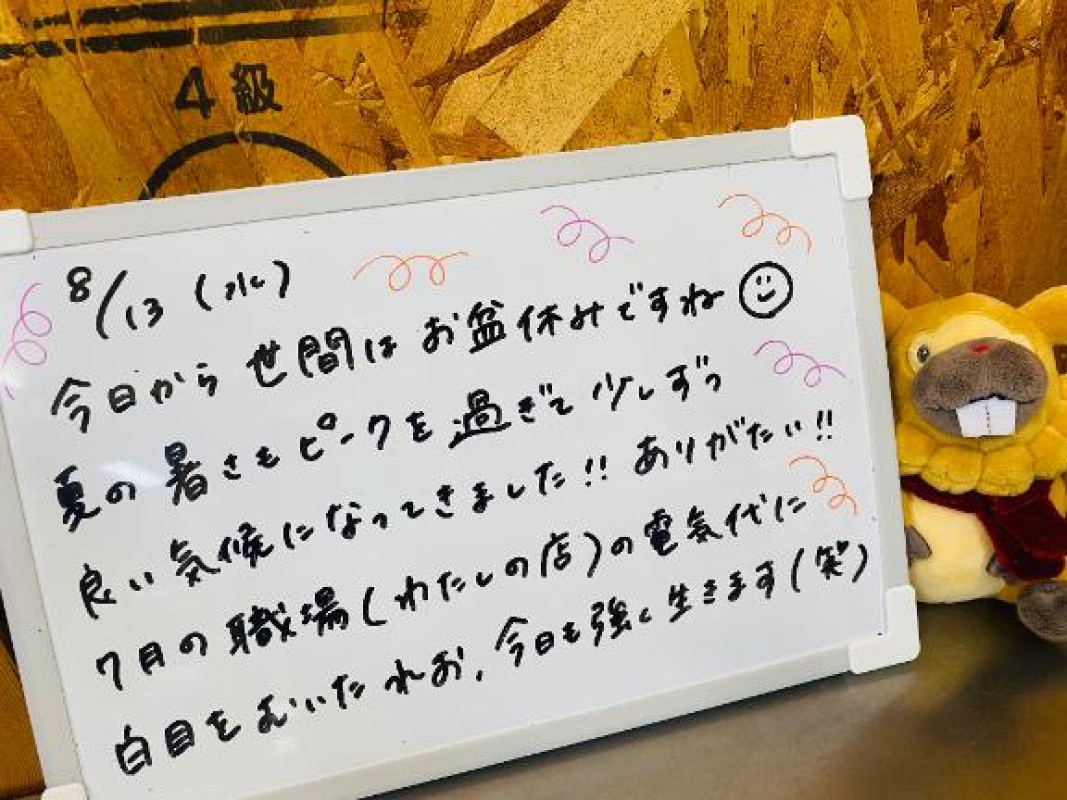 4級
8/13 (水)
今日から世間はお盆休みですね
夏の暑さもピークを過ぎて少しずつ
良い気候になってきました!! ありがたい!!
7月の職場(わたしの店)の電気代に
白目をむいたれお、今日も強く生きます(笑)